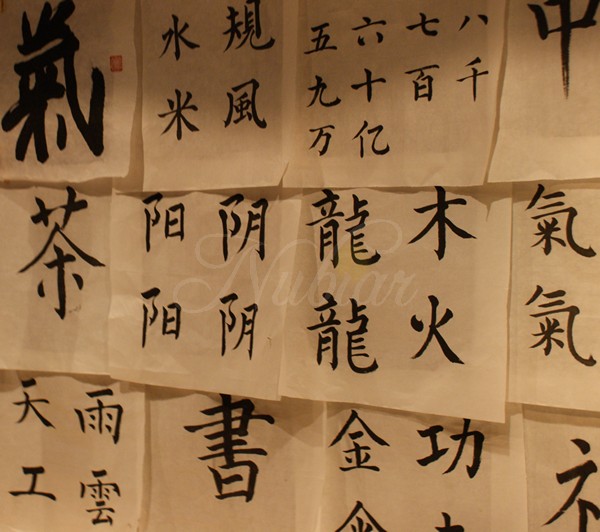 氣
水 規
米 風
五 六 七 八
九 十 百 千
万 亿
中
茶
阳 阴
阳 阴
龍 木
龍 火
氣
氣
天 雨
工 雲
書
金 功